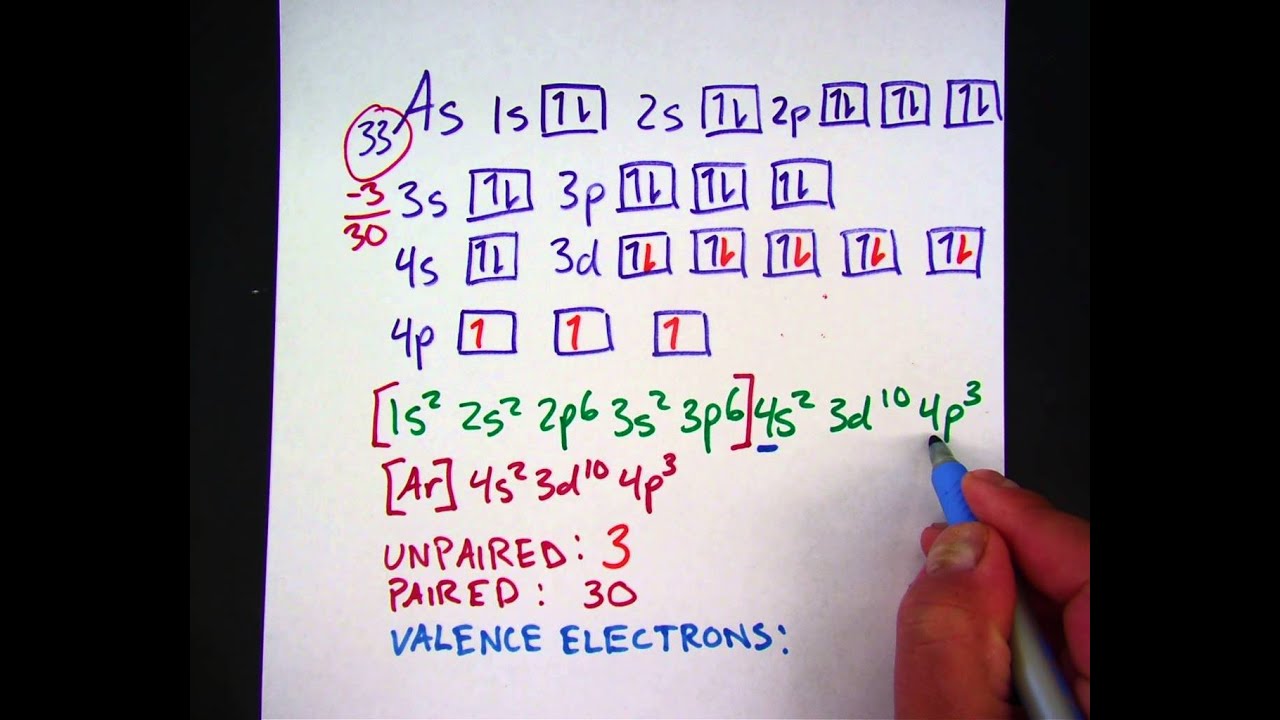 As 1s 1⇂ 2s 1⇂ 2p 1⇂ 1⇂ 1⇂
33
-3
30
3s 1⇂ 3p 1⇂ 1⇂ 1⇂
4s 1⇂ 3d 1⇂ 1⇂ 1⇂ 1⇂ 1⇂
4p 1 1 1
[1s² 2s² 2p⁶ 3s² 3p⁶] 4s² 3d¹⁰ 4p³
[Ar] 4s² 3d¹⁰ 4p³
UNPAIRED: 3
PAIRED: 30
VALENCE ELECTRONS: